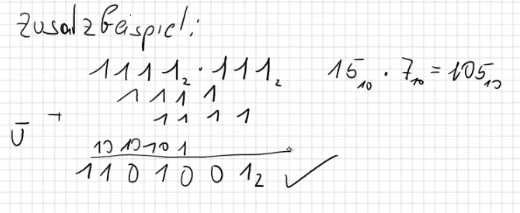 Zusatzbeispiel:
1111₂ · 111₂ 15₁₀ · 7₁₀ = 105₁₀
1111
+ 1111
Ü 10 10 10 1
1101001₂ ✓